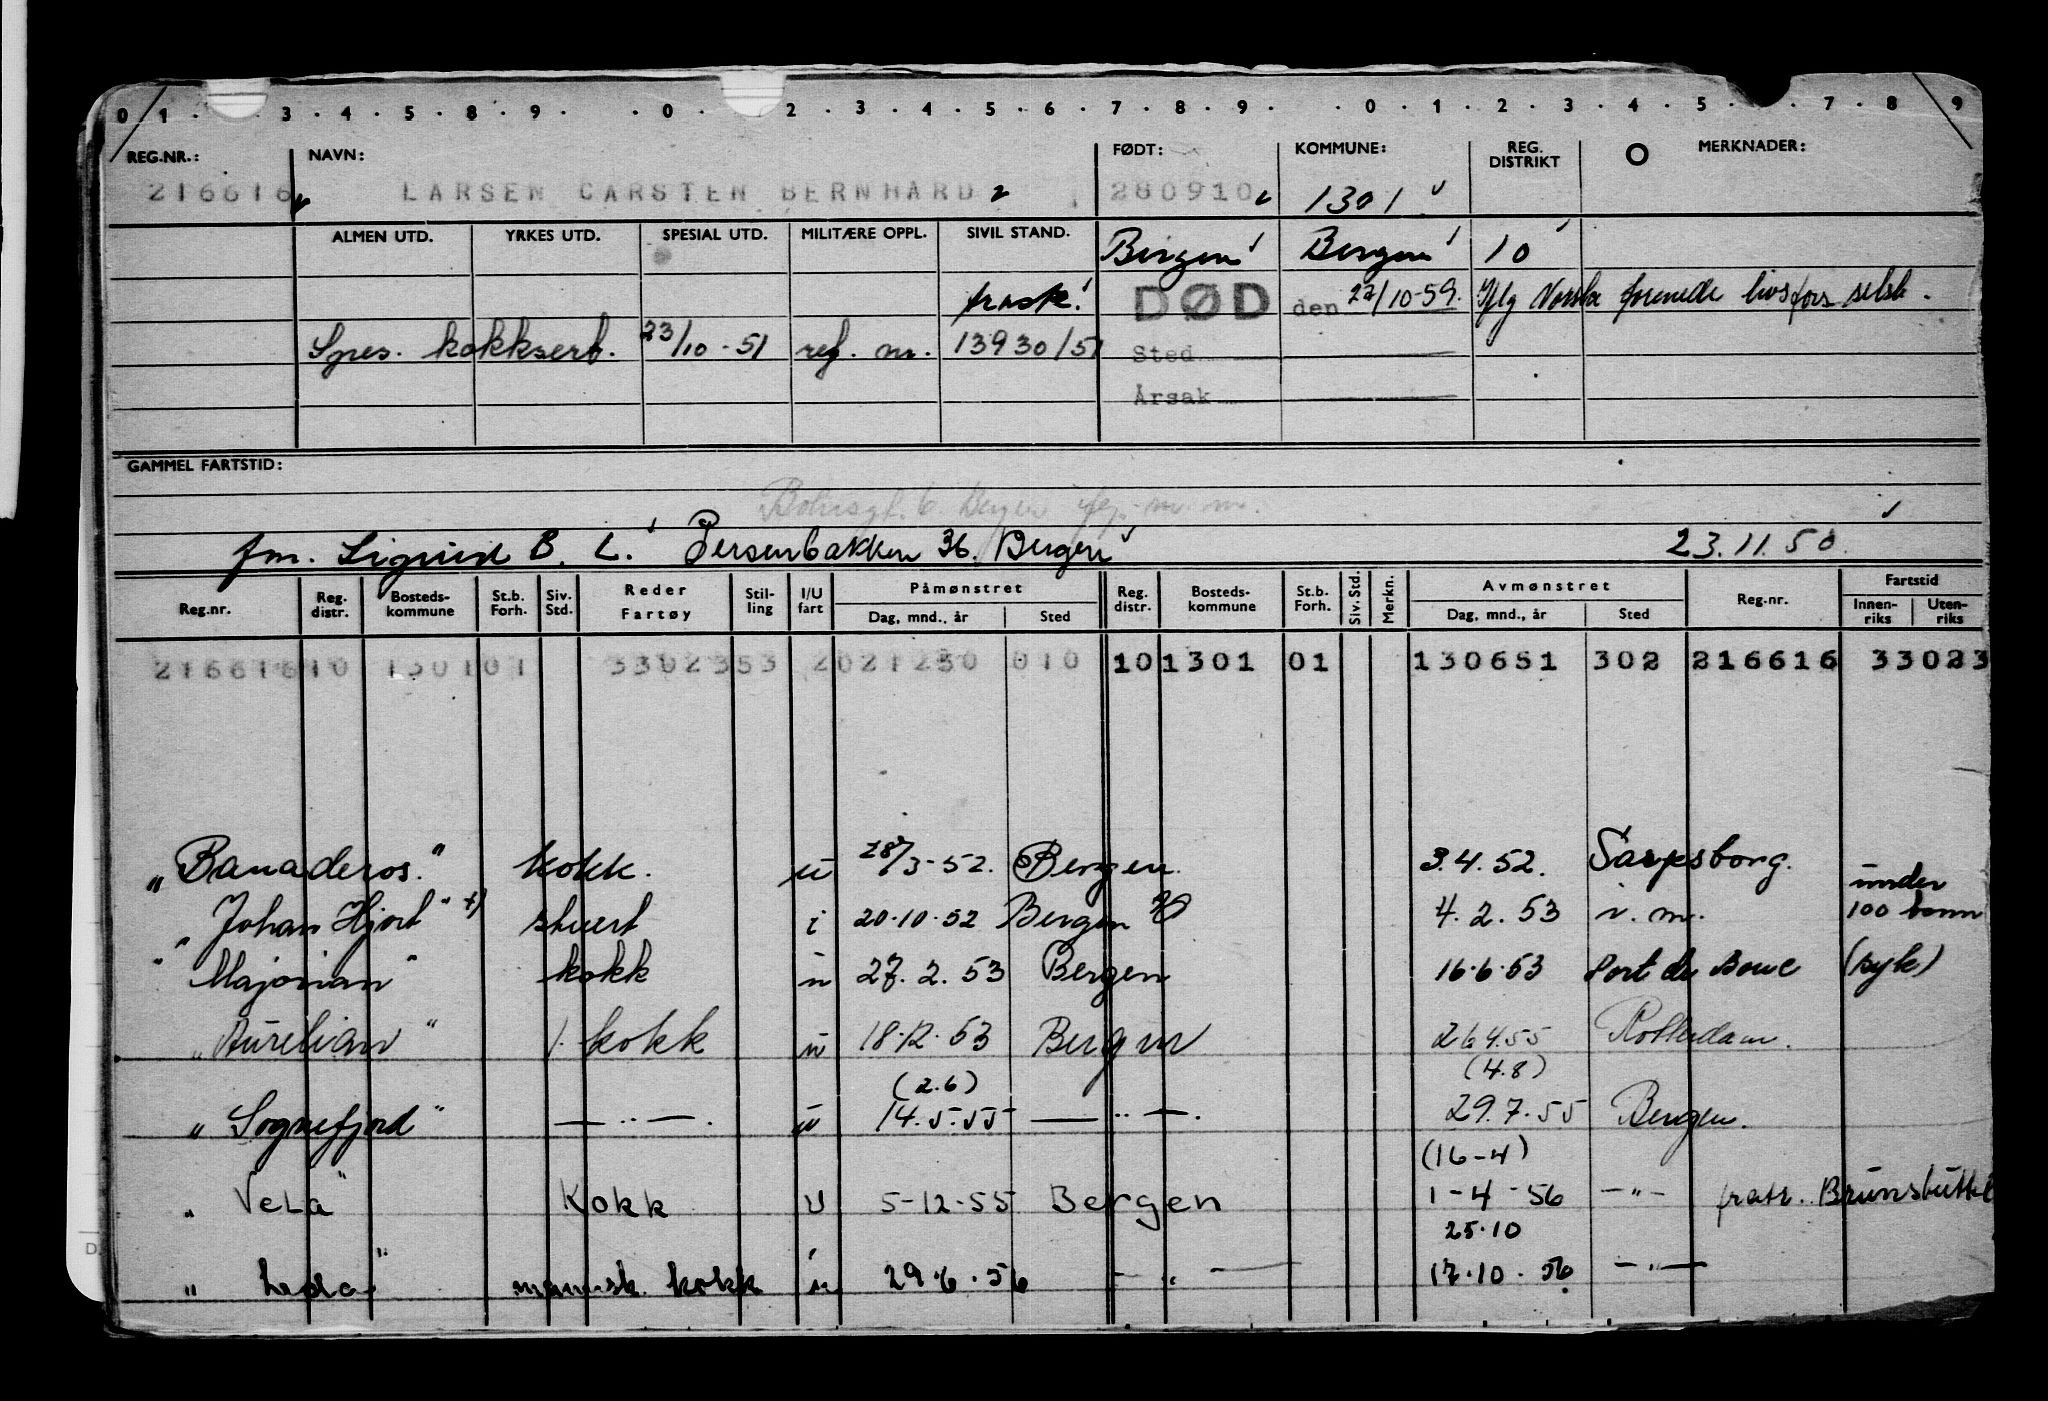 0 1 . . 3 . 4 . 5 . 8 . 9 . . 0 . . 2 . 3 . 4 . 5 . 6 . 7 . 8 . 9 . . 0 . 1 . 2 . 3 . 4 . 5 . . 7 . 8 . 9
REG.NR.: NAVN: FØDT: KOMMUNE: REG. DISTRIKT MERKNADER:
216616 LARSEN CARSTEN BERNHARD 280910 1301
ALMEN UTD. YRKES UTD. SPESIAL UTD. MILITÆRE OPPL. SIVIL STAND. Bergen Bergen 10
frask. DØD den 27/10-59. Iflg Norske forenede livsfors selsk.
Spes. kokksert. 23/10-51 ref. nr. 13930/51 Sted
Årsak
GAMMEL FARTSTID:
6. Bergen
fm. Sigrid B. L. Persenbakken 36. Bergen 23.11.50.
Reg.nr. Reg. distr. Bosteds-kommune St.b. Forh. Siv. Std. Reder Fartøy Stil-ling I/U fart Påmønstret Dag, mnd., år Sted Reg. distr. Bosteds-kommune St.b. Forh. Siv. Std. Merkn. Avmønstret Dag, mnd., år Sted Reg.nr. Fartstid Innen-riks Uten-riks
216616 10 130101 3302353 2021250 010 10 1301 01 130651 302 216616 33023
"Banaderos." kokk. u 28/3-52. Bergen. 3.4.52. Sarpsborg.
"Johan Hjort" t) stuert i 20.10.52 Bergen 4.2.53 i.m. under 100 tonn
"Majorian" kokk u 27.2.53 Bergen 16.6.53 Port de Bouc (syk)
"Aurelian" 1. kokk u 18.12.53 Bergen 26.4.55 Rotterdam.
(2.6) (4.8)
"Sognefjord" — " — . u 14.5.55 — " — . 29.7.55 Bergen.
(16-4)
"Vela" Kokk U 5-12-55 Bergen 1-4-56 — " — fratr. Brunsbüttel
25.10
"Leda" mannsk. kokk u 29.6.56 — " — 17.10.56. — " —